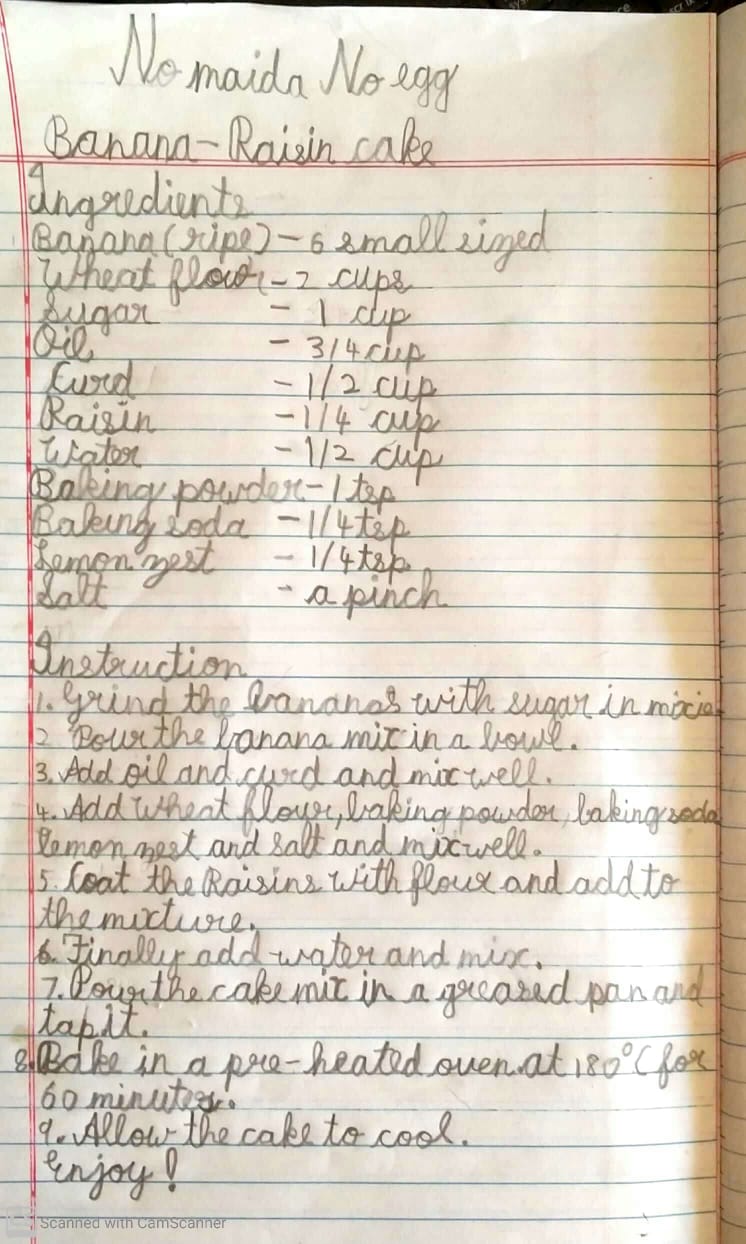 No maida No egg
Banana-Raisin cake
Ingredients
Banana (ripe) - 6 small sized
Wheat flour - 2 cups
Sugar - 1 cup
Oil - 3/4 cup
Curd - 1/2 cup
Raisin - 1/4 cup
Water - 1/2 cup
Baking powder - 1 tsp
Baking soda - 1/4 tsp
Lemon zest - 1/4 tsp
Salt - a pinch
Instruction
1. Grind the bananas with sugar in mixie.
2 Pour the banana mix in a bowl.
3. Add oil and curd and mix well.
4. Add Wheat flour, baking powder, baking soda
lemon zest and salt and mix well.
5. Coat the Raisins with flour and add to
the mixture.
6. Finally add water and mix.
7. Pour the cake mix in a greased pan and
tap it.
8. Bake in a pre-heated oven at 180°C for
60 minutes.
9. Allow the cake to cool.
Enjoy!
CS Scanned with CamScanner